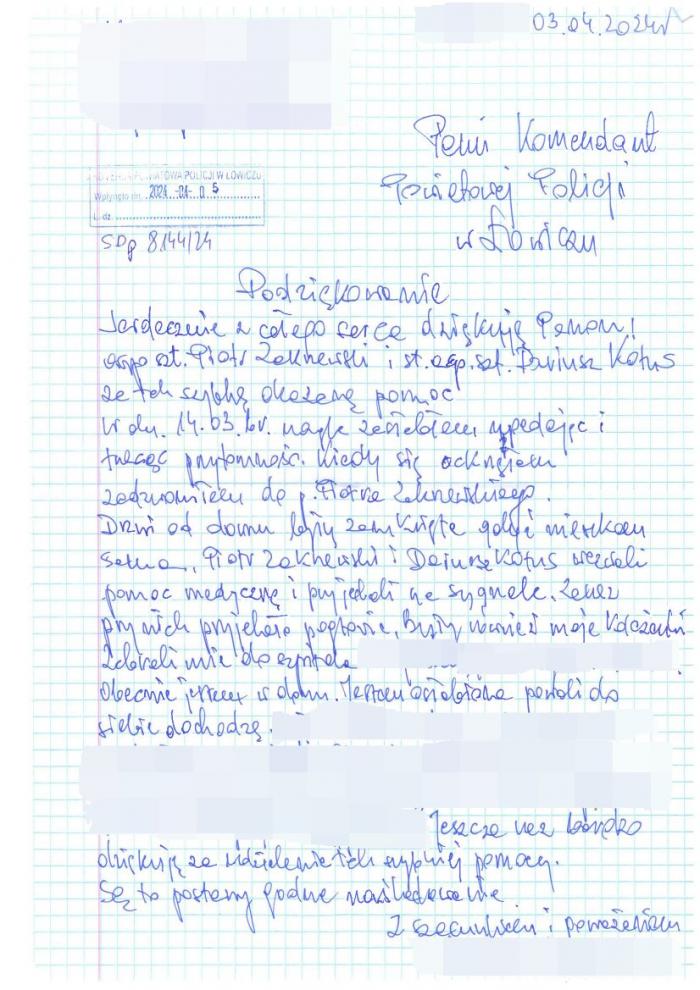 03.04.2024r
Pani Komendant
Powiatowej Policji
w Łowiczu
POWIATOWA POLICJI W ŁOWICZU
Wpłynęło dn. 2024 -04- 05
L.dz.
SDp 8144/24
Podziękowanie
Serdecznie z całego serca dziękuję Panom!
asp. szt. Piotr Zaknewski i st. asp. szt. Dariusz Kotus
za tak szybką okazaną pomoc
W dn. 14.03.br. nagle zasłabłam upadając i
tracąc przytomność. Kiedy się ocknęłam
zadzwoniłam do p. Piotra Zaknewskiego.
Drzwi od domu były zamknięte gdyż mieszkam
sama, Piotr Zaknewski i Dariusz Kotus wezwali
pomoc medyczną i przyjechali na sygnale. Zaraz
przy nich przyjechało pogotowie, były również moje
Zabrali mnie do szpitala
Obecnie jestem w domu. Jestem osłabiona powoli do
siebie dochodzę.
Jeszcze raz bardzo
dziękuję za udzielenie tak szybkiej pomocy.
Są to postawy godne naśladowania
Z szacunkiem i poważaniem